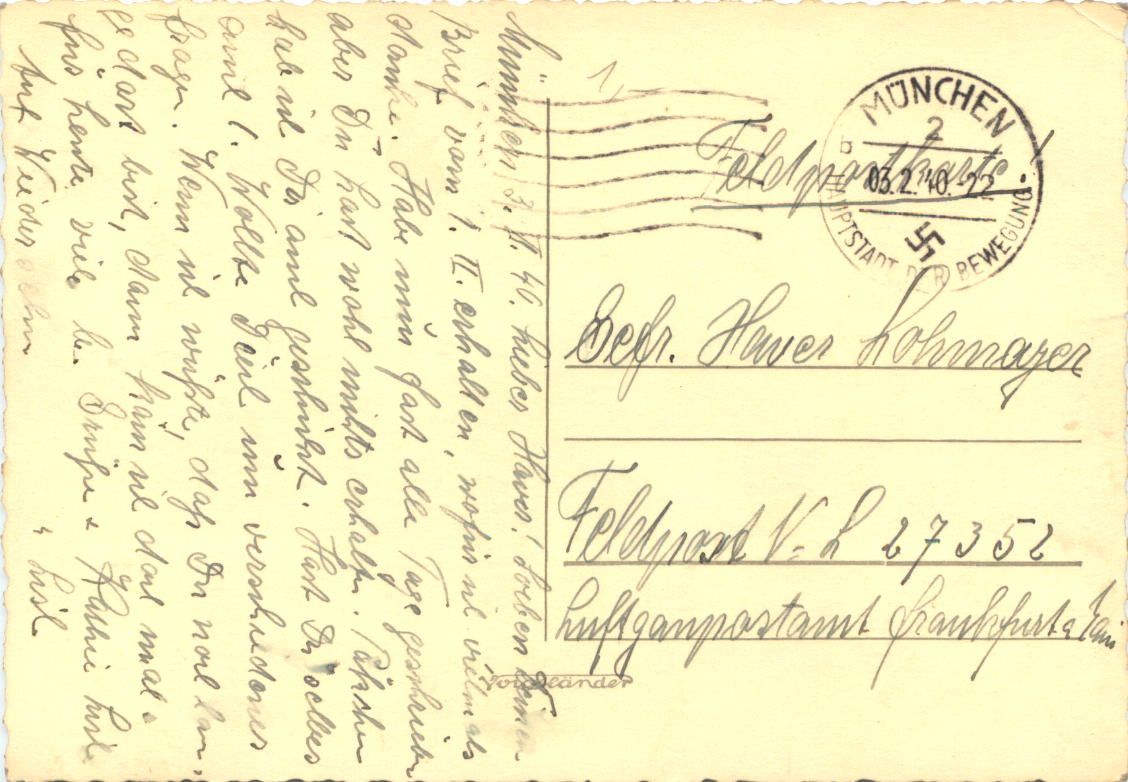 München 3. II. 40. Lieber Xaver! Soeben Deinen
Brief vom 1. II. erhalten, wofür ich vielmals
danke. Habe nun fast alle Tage geschrieben
aber Du hast wohl nichts erhalten.
hab ich Dir auch geschickt. Hast Du selbes
auch ?. Wollte Dein um verschiedenes
fragen. Wenn ich wüsste, daß Du noch
dort bist, dann kann ich doch mal
Für heute viele Grüße & Küsse
Auf Wiedersehn
Lisl
1,
Feldpostkarte
MÜNCHEN
2
b
03.2.40.-22
HAUPTSTADT DER BEWEGUNG
Gefr. Xaver Lohmayer
Feldpost N- L 27352
Luftgaupostamt Frankfurt a Main
Voigtländer